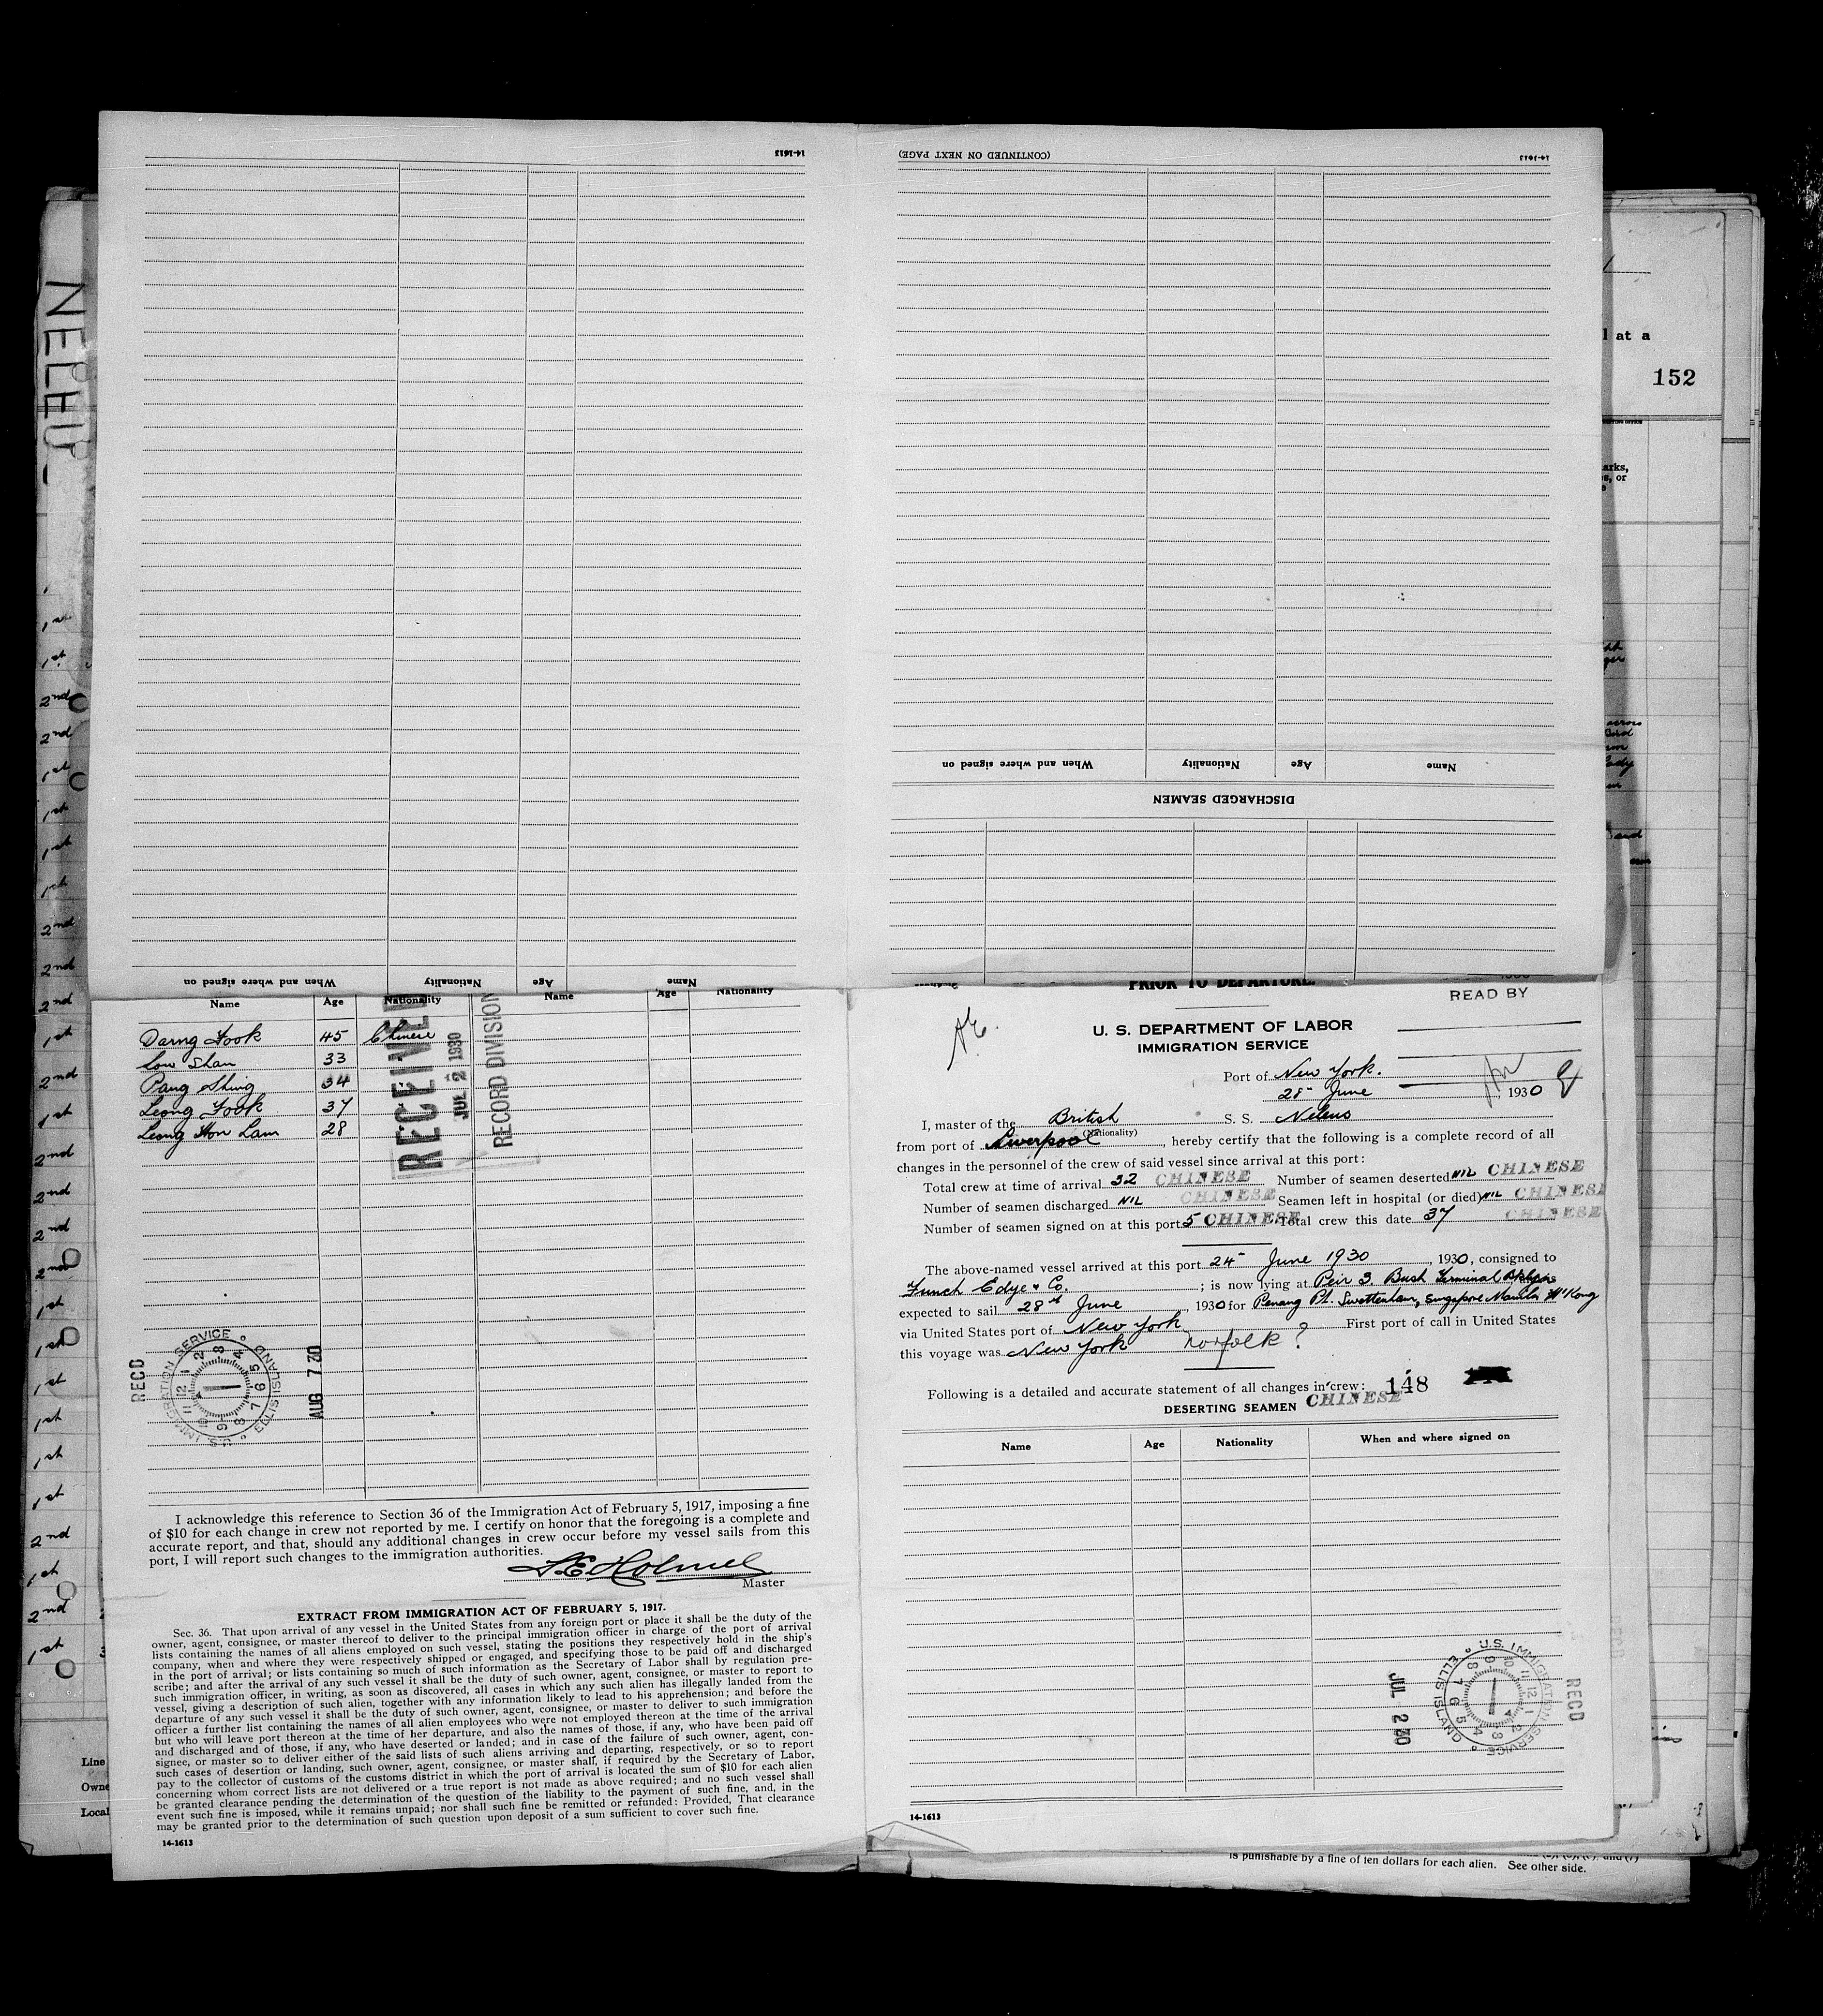 14-1613
(CONTINUED ON NEXT PAGE)
14-1613
When and where signed on
Nationality
Age
Name
DISCHARGED SEAMEN
When and where signed on
Nationality
Age
Name
NELEUS
at a
152
Name Age Nationality Name Age Nationality
Darng Fook 45 Chinese
Low Shan 33
Pang Shing 34
Leong Fook 37
Leong Hon Lam 28
RECEIVED
JUL 2 1930
RECORD DIVISION
RECD
U. S. IMMIGRATION SERVICE
ELLIS ISLAND
AUG 7 30
I acknowledge this reference to Section 36 of the Immigration Act of February 5, 1917, imposing a fine
of $10 for each change in crew not reported by me. I certify on honor that the foregoing is a complete and
accurate report, and that, should any additional changes in crew occur before my vessel sails from this
port, I will report such changes to the immigration authorities.
Master
EXTRACT FROM IMMIGRATION ACT OF FEBRUARY 5, 1917.
Sec. 36. That upon arrival of any vessel in the United States from any foreign port or place it shall be the duty of the
owner, agent, consignee, or master thereof to deliver to the principal immigration officer in charge of the port of arrival
lists containing the names of all aliens employed on such vessel, stating the positions they respectively hold in the ship's
company, when and where they were respectively shipped or engaged, and specifying those to be paid off and discharged
in the port of arrival; or lists containing so much of such information as the Secretary of Labor shall by regulation pre-
scribe; and after the arrival of any such vessel it shall be the duty of such owner, agent, consignee, or master to report to
such immigration officer, in writing, as soon as discovered, all cases in which any such alien has illegally landed from the
vessel, giving a description of such alien, together with any information likely to lead to his apprehension; and before the
departure of any such vessel it shall be the duty of such owner, agent, consignee, or master to deliver to such immigration
officer a further list containing the names of all alien employees who were not employed thereon at the time of the arrival
but who will leave port thereon at the time of her departure, and also the names of those, if any, who have been paid off
and discharged and of those, if any, who have deserted or landed; and in case of the failure of such owner, agent, con-
signee, or master so to deliver either of the said lists of such aliens arriving and departing, respectively, or so to report
such cases of desertion or landing, such owner, agent, consignee, or master shall, if required by the Secretary of Labor,
pay to the collector of customs of the customs district in which the port of arrival is located the sum of $10 for each alien
concerning whom correct lists are not delivered or a true report is not made as above required; and no such vessel shall
be granted clearance pending the determination of the question of the liability to the payment of such fine, and, in the
event such fine is imposed, while it remains unpaid; nor shall such fine be remitted or refunded: Provided, That clearance
may be granted prior to the determination of such question upon deposit of a sum sufficient to cover such fine.
14-1613
PRIOR TO DEPARTURE.
READ BY
U. S. DEPARTMENT OF LABOR
IMMIGRATION SERVICE
Port of New York.
28 June, 1930
I, master of the British S. S. Neleus
(Nationality)
from port of Liverpool, hereby certify that the following is a complete record of all
changes in the personnel of the crew of said vessel since arrival at this port:
Total crew at time of arrival 32 CHINESE Number of seamen deserted NIL CHINESE
Number of seamen discharged NIL CHINESE Seamen left in hospital (or died) NIL CHINESE
Number of seamen signed on at this port 5 CHINESE Total crew this date 37 CHINESE
The above-named vessel arrived at this port 24 June 1930, 1930, consigned to
Funch Edye & Co.; is now lying at Peir 3. Bush Terminal Bklyn
expected to sail 28th June, 1930 for Penang Pt. Swettenham, Singapore Manila H'Kong
via United States port of New York First port of call in United States
this voyage was New York Norfolk?
Following is a detailed and accurate statement of all changes in crew: 148
DESERTING SEAMEN CHINESE
Name Age Nationality When and where signed on
U.S. IMMIGRATION SERVICE
ELLIS ISLAND
JUL 2 30
RECD
14-1613
Line
Owne
Local
is punishable by a fine of ten dollars for each alien. See other side.